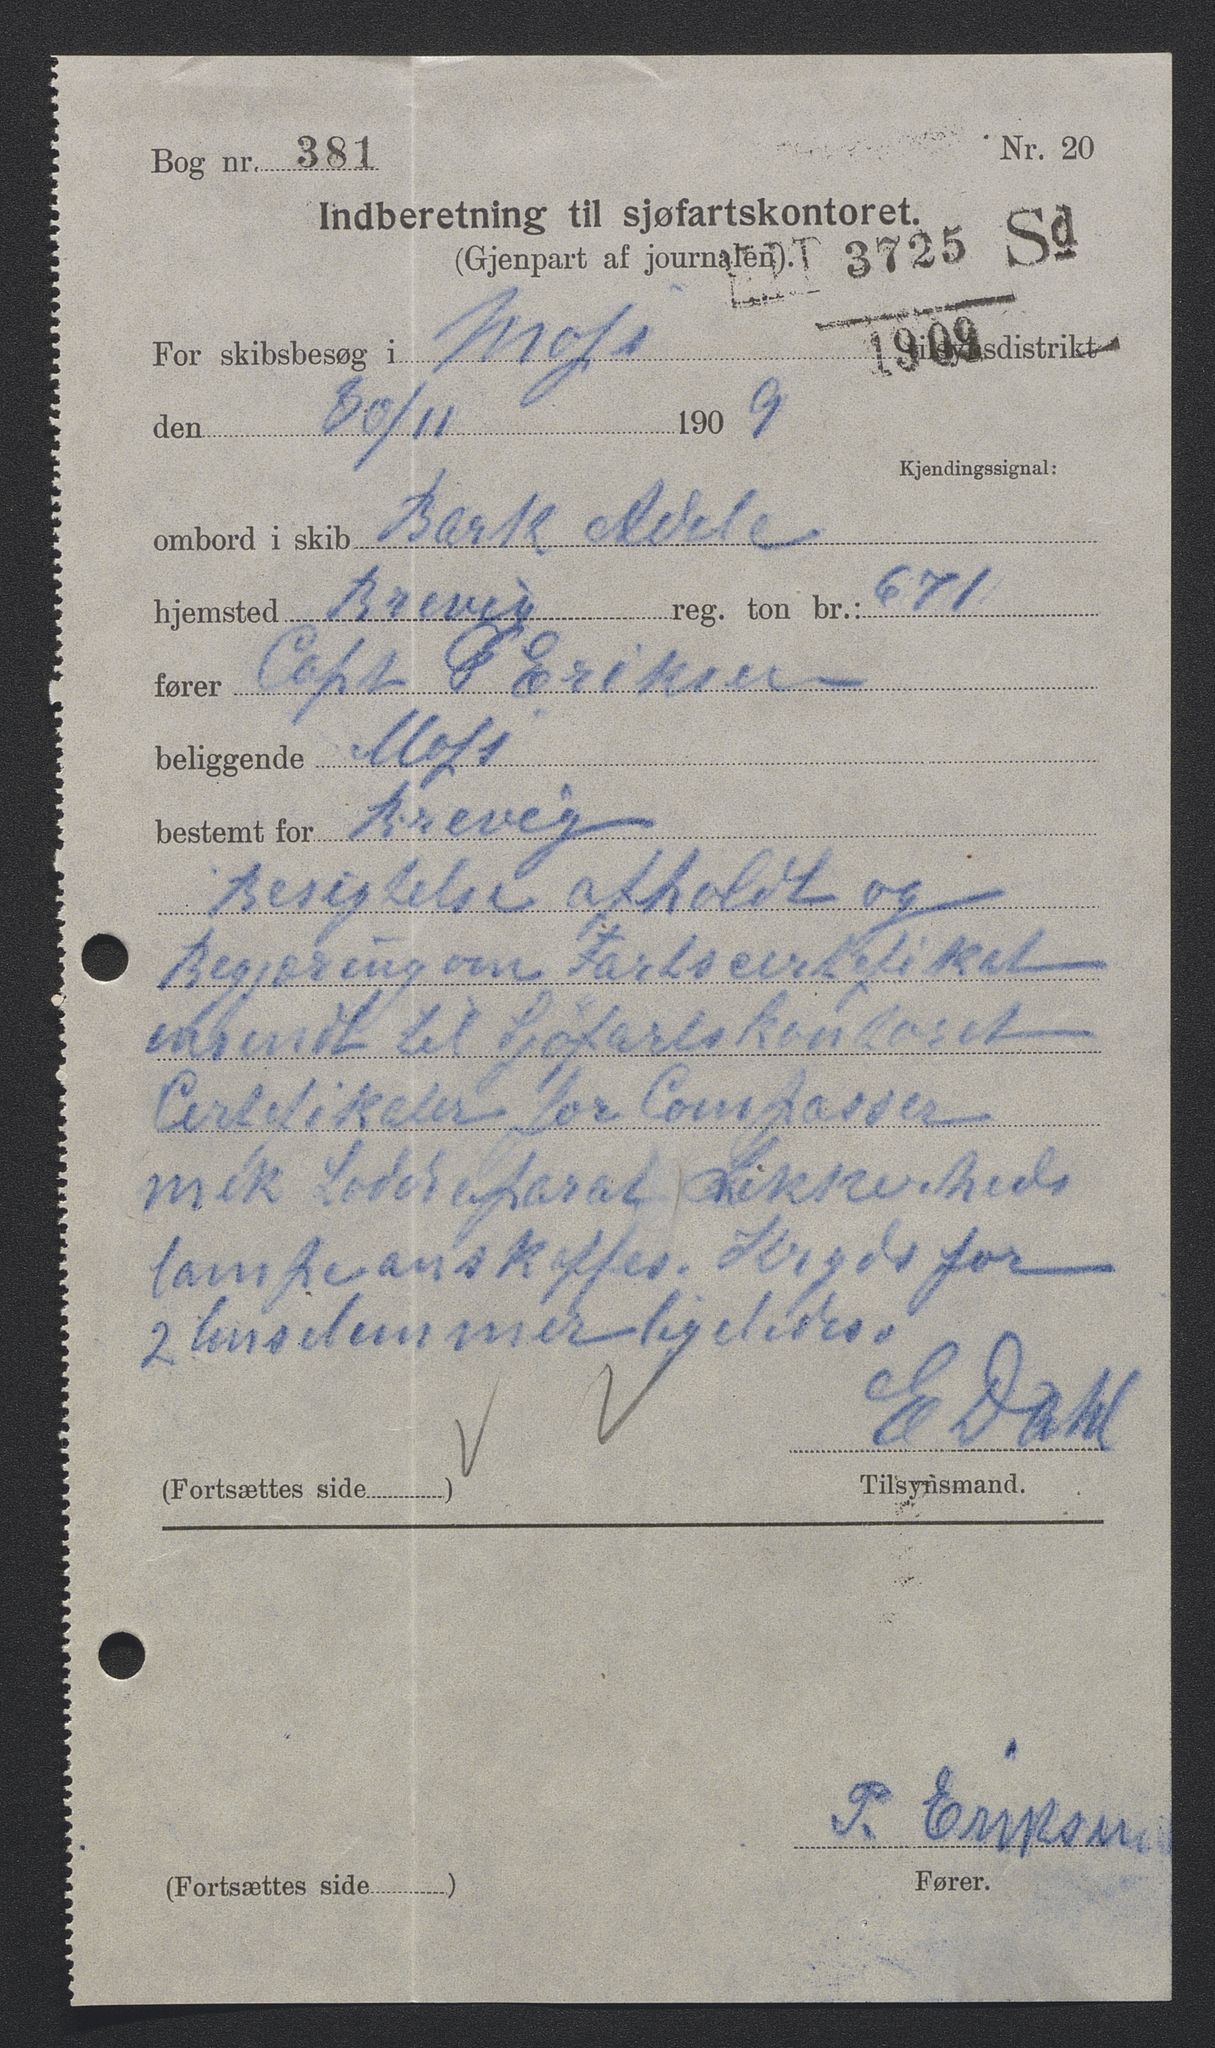 Bog nr. 381
Nr. 20
Indberetning til sjøfartskontoret.
(Gjenpart af journalen).
3725 Sd
1909
For skibsbesøg i Moss tilsynsdistrikt
den 30/11 1909
Kjendingssignal:
ombord i skib Bark Adele
hjemsted Brevig reg. ton br.: 671
fører Capt T Eriksen
beliggende Moss
bestemt for Brevig
Besigtelse afholdt og
Begjæring om Fartscertefikat
insendt til Sjöfartskontoret
Certefikater for Compasser
mek Loddeaparat Sikkerheds
lampe anskaffes. Kryds for
2 ligeledes.
E Dahl
(Fortsættes side )
Tilsynsmand.
T. Eriksen
(Fortsættes side )
Fører.